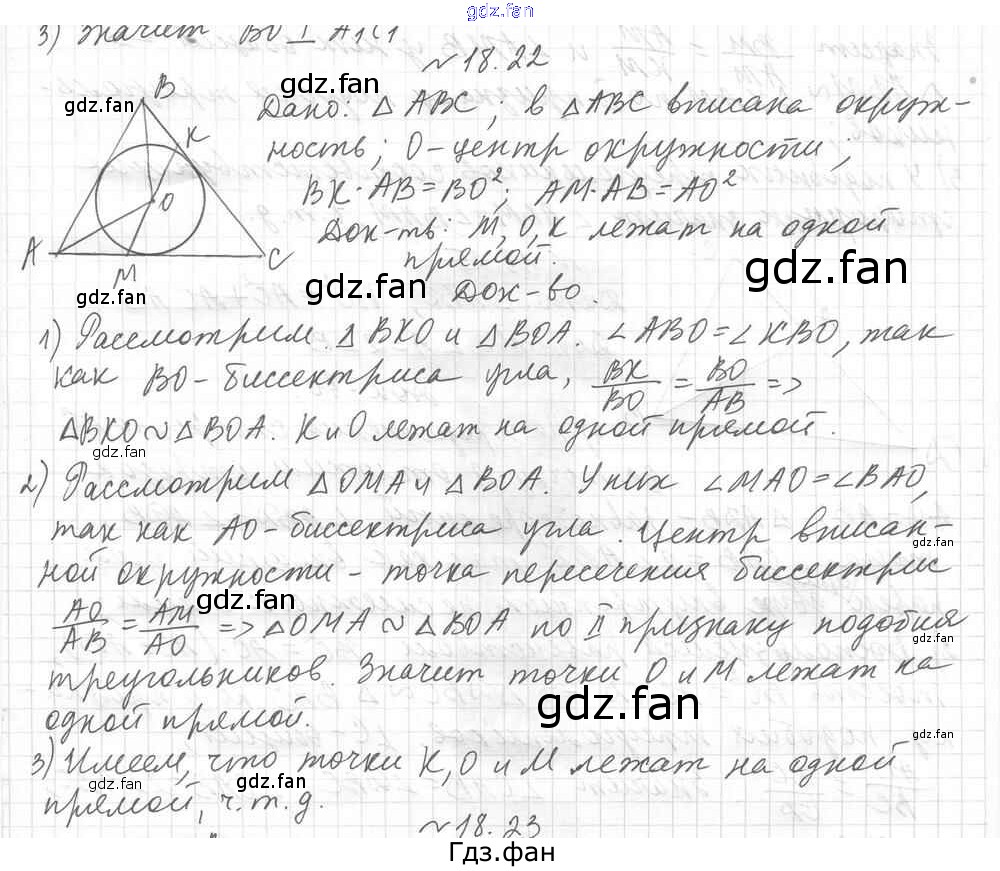 gdz.fan
3) Значит BO ⊥ A₁C₁
№18.22
gdz.fan
gdz.fan
B
K
O
A
M
C
Дано: △ ABC; в △ABC вписана окруж-
ность; O-центр окружности;
BK·AB=BO²; AM·AB=AO²
Док-ть: M, O, K лежат на одной
прямой.
gdz.fan
gdz.fan
gdz.fan
Док-во.
1) Рассмотрим △ BKO и △ BOA. ∠ABO=∠KBO, так
как BO-биссектриса угла, BK/BO = BO/AB =>
△BKO ~ △BOA. K и O лежат на одной прямой.
gdz.fan
2) Рассмотрим △OMA и △BOA. У них ∠MAO=∠BAO,
так как AO-биссектриса угла. Центр вписан-
gdz.fan
ной окружности - точка пересечения биссектрис
gdz.fan
AO/AB = AM/AO => △OMA ~ △BOA по II признаку подобия
треугольников. Значит точки O и M лежат на
gdz.fan
одной прямой.
gdz.fan
3) Имеем, что точки K, O и M лежат на одной
gdz.fan
gdz.fan
прямой, ч.т.д.
№18.23
Гдз.фан